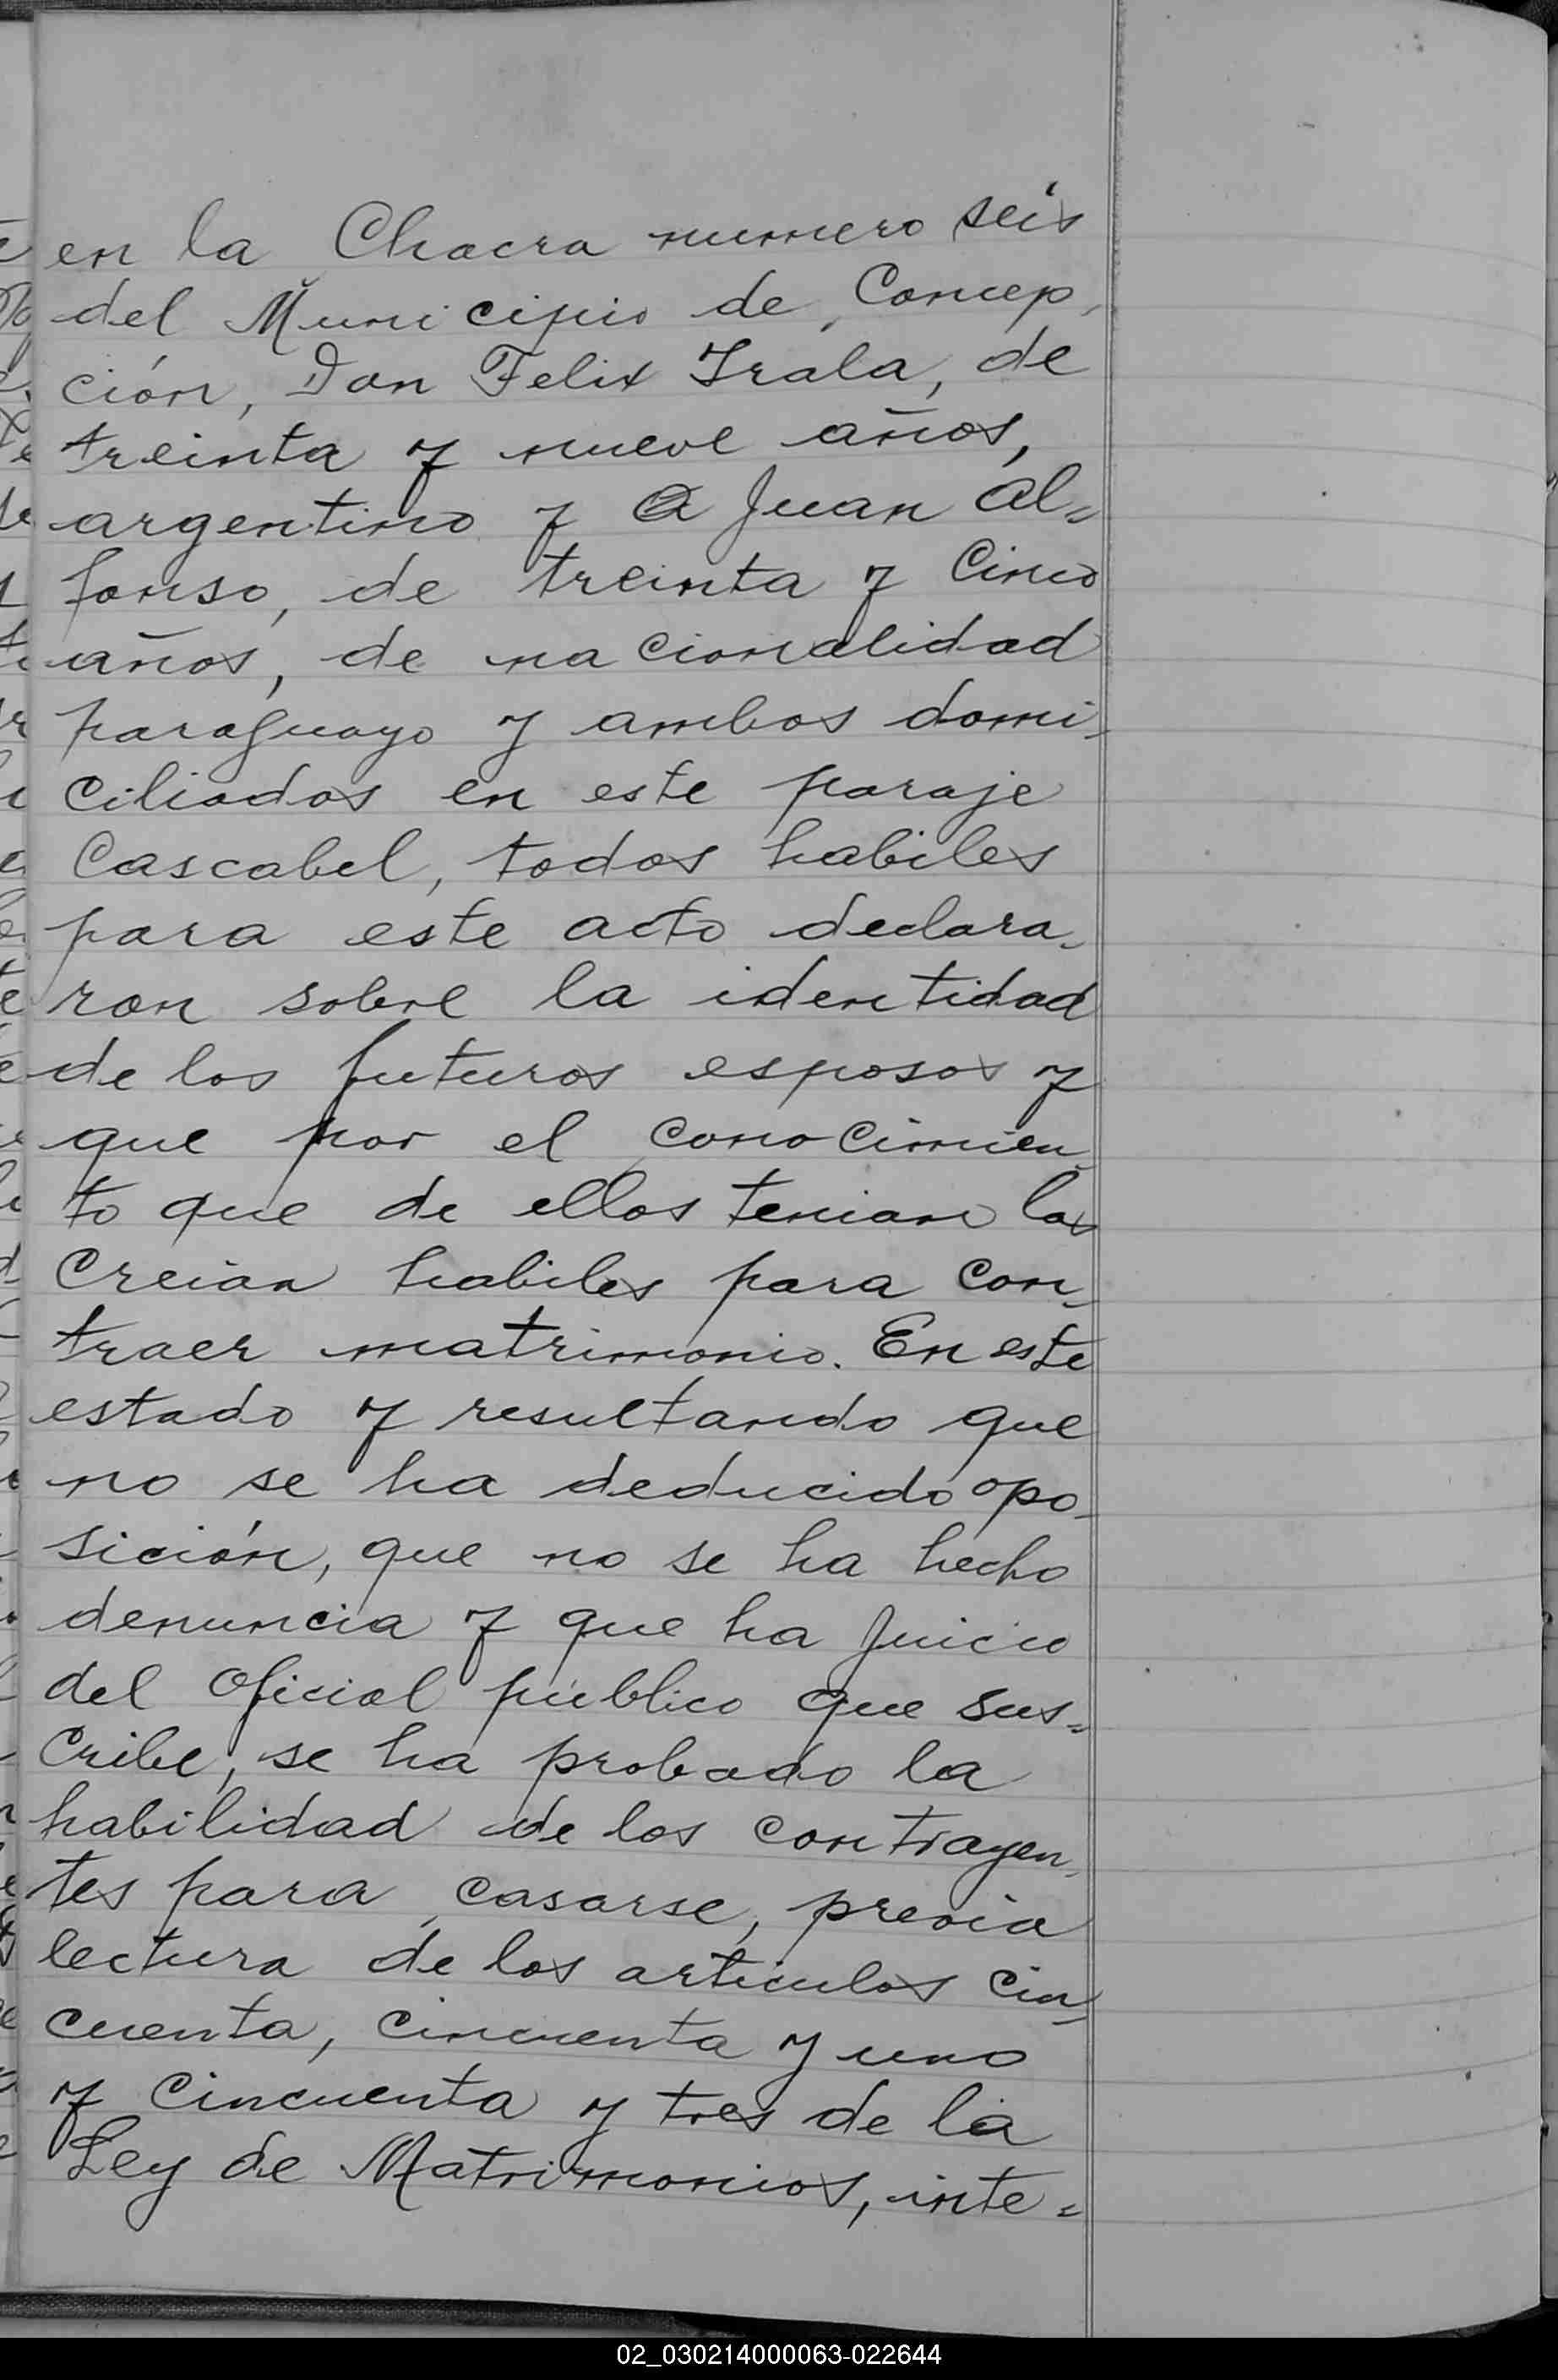 en la Chacra numero seis
del Municipio de Concep-
ción, Don Felix Irala, de
treinta y nueve años,
argentino y a Juan Al=
fonso, de treinta y cinco
años, de nacionalidad
paraguayo y ambos domi-
ciliados en este paraje
Cascabel, todos habiles
para este acto declara-
ron sobre la identidad
de los futuros esposos y
que por el conocimien-
to que de ellos tenian los
creian habiles para con-
traer matrimonio. En este
estado y resultando que
no se ha deducido opo-
sición, que no se ha hecho
denuncia y que ha juicio
del oficial público que sus=
cribe, se ha probado la
habilidad de los contrayen-
tes para casarse, previa
lectura de los articulos cin-
cuenta, cincuenta y uno
y cincuenta y tres de la
Ley de Matrimonios, inte=
02_030214000063-022644